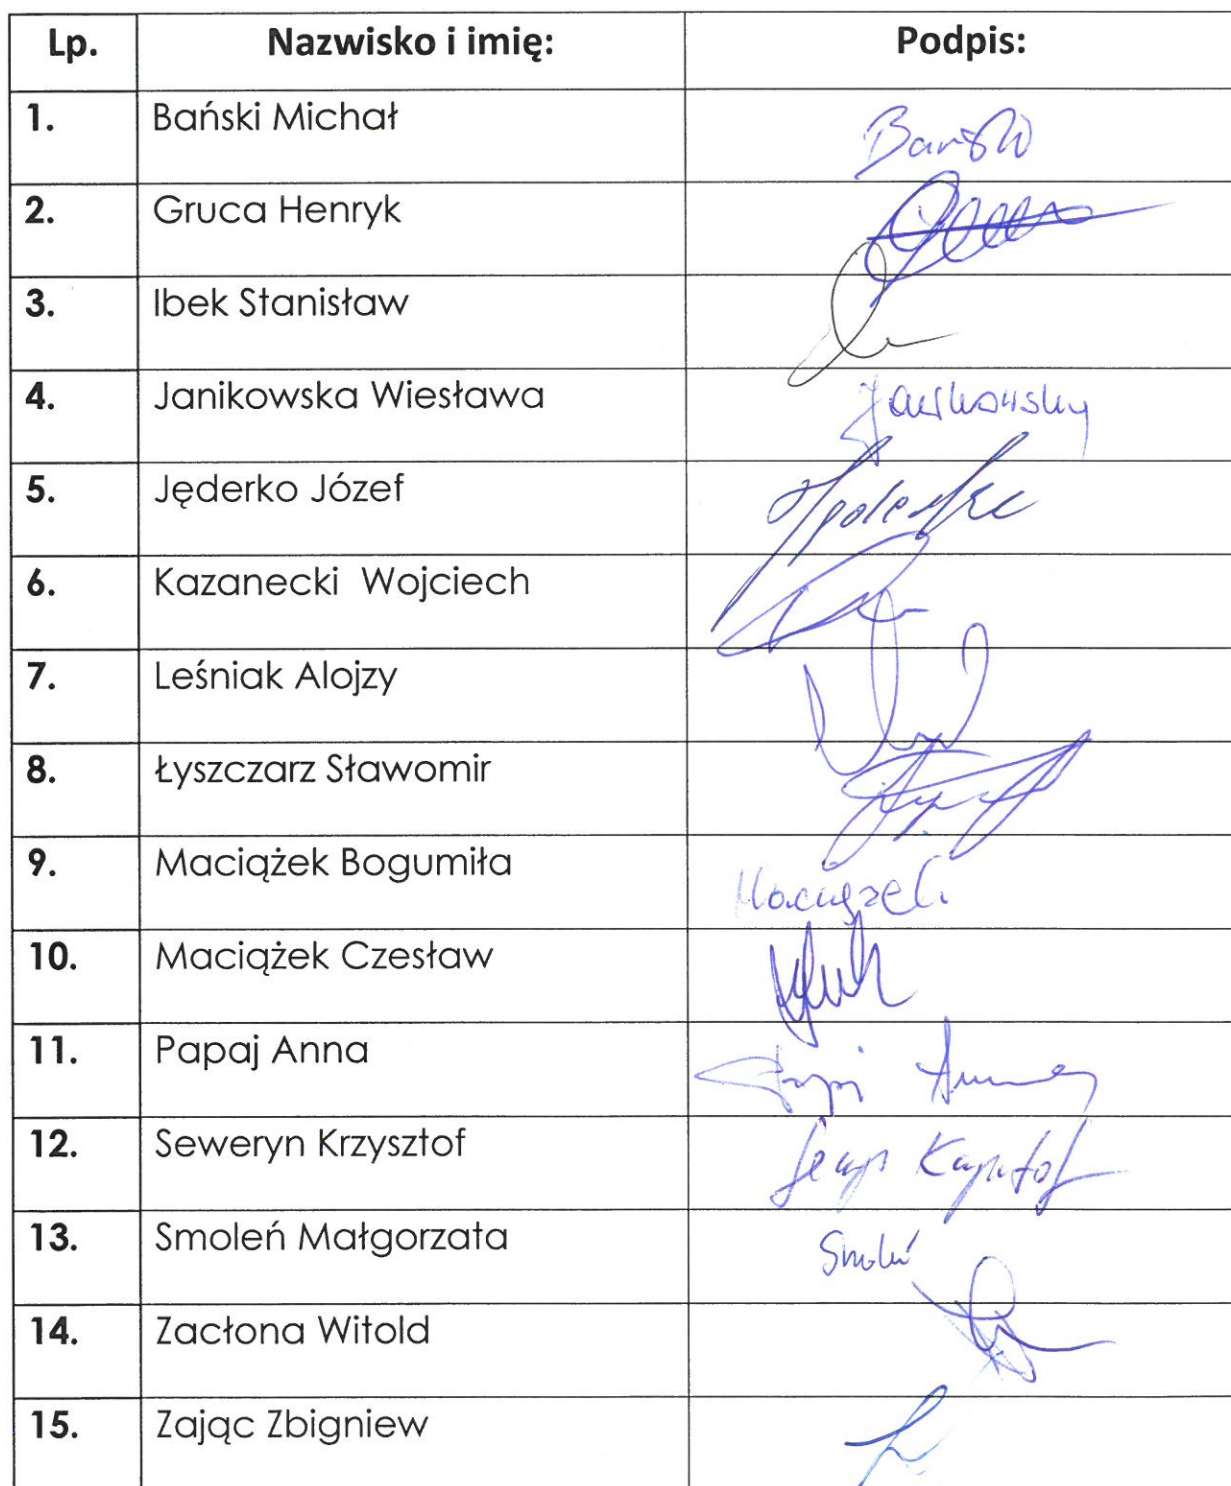 Lp. Nazwisko i imię: Podpis:
1. Bański Michał Bański
2. Gruca Henryk
3. Ibek Stanisław
4. Janikowska Wiesława
5. Jęderko Józef
6. Kazanecki Wojciech
7. Leśniak Alojzy
8. Łyszczarz Sławomir
9. Maciążek Bogumiła
10. Maciążek Czesław
11. Papaj Anna
12. Seweryn Krzysztof
13. Smoleń Małgorzata Smoleń
14. Zacłona Witold
15. Zając Zbigniew